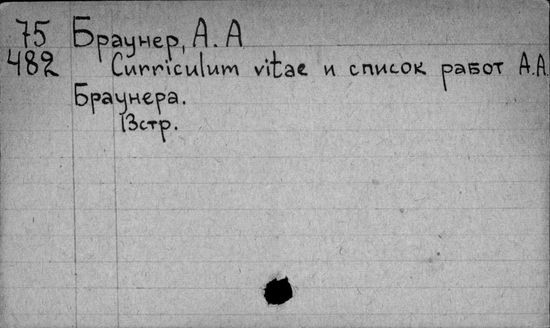 75 Браунер, А. А
482 Curriculum vitae и список работ А.А.
Браунера.
13стр.